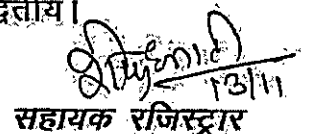 द्वितीय।
13/11
सहायक रजिस्ट्रार